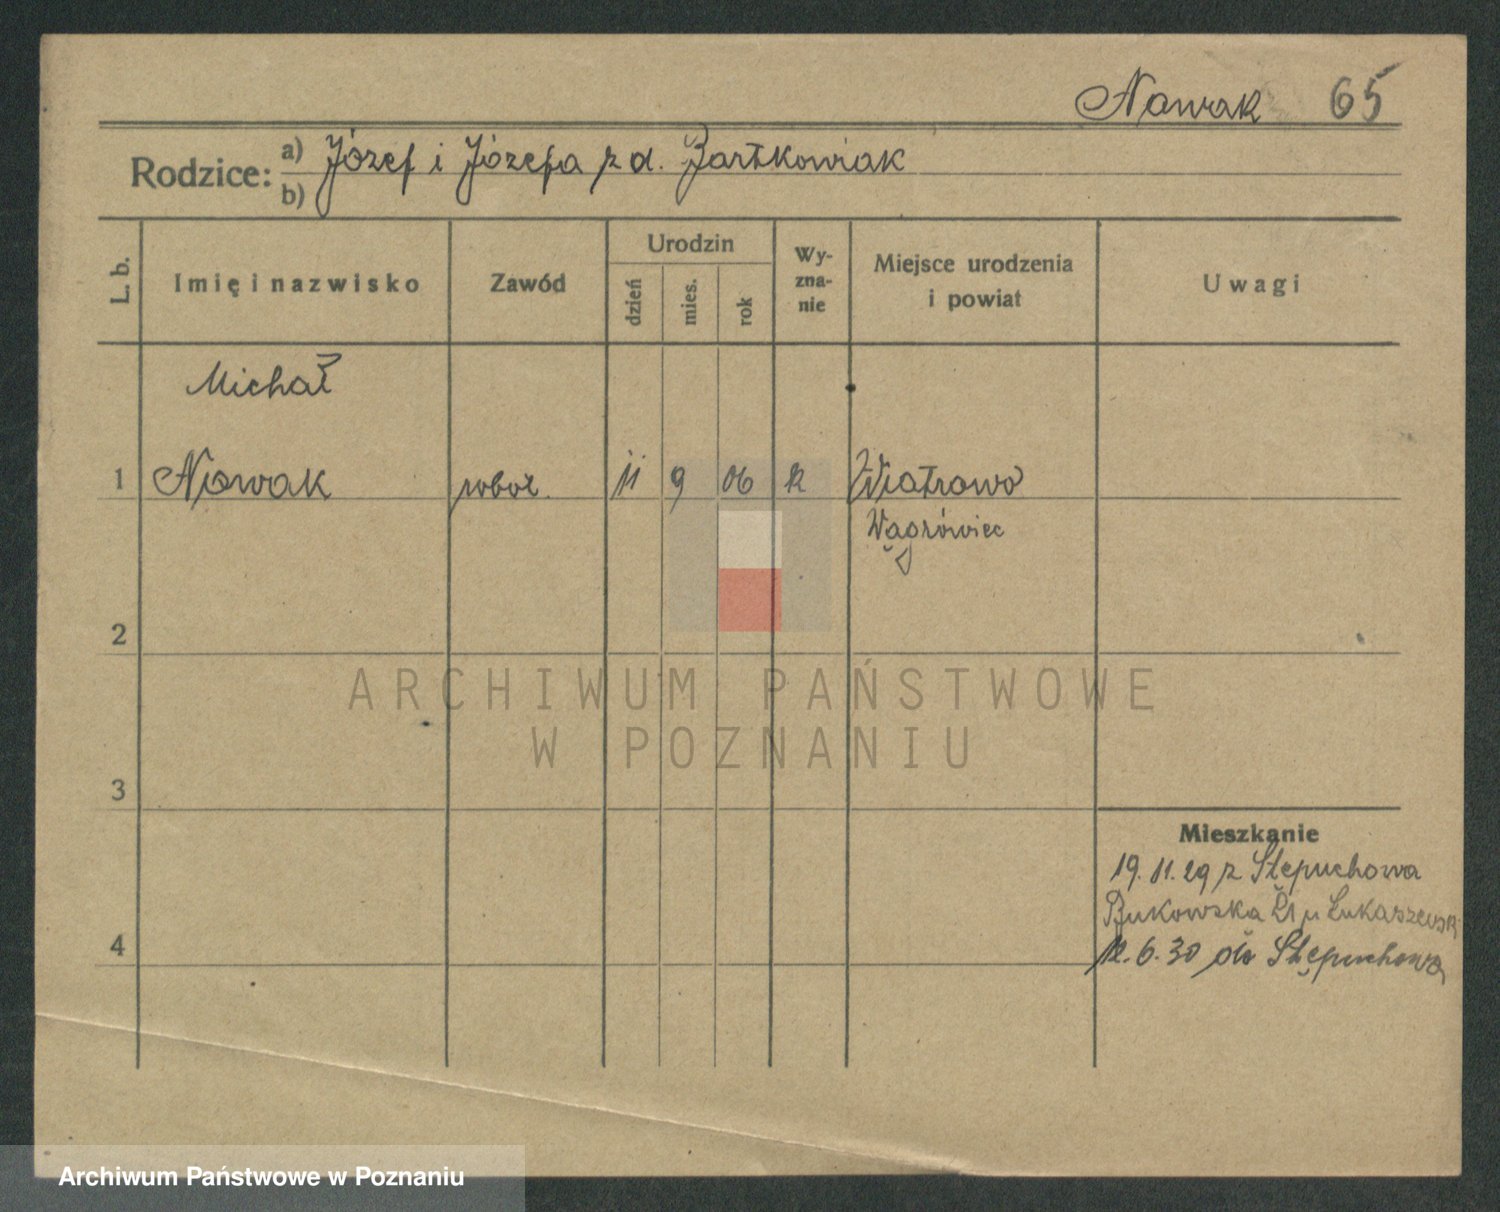 Nowak 65
Rodzice: a) Józef i Józefa z d. Bartkowiak
b)
L. b. Imię i nazwisko Zawód Urodzin dzień mies. rok Wy-zna-nie Miejsce urodzenia i powiat Uwagi
Michał
1 Nowak robot. 11 9 06 k Wiatrowo
Wągrówiec
2
ARCHIWUM PAŃSTWOWE
W POZNANIU
3
Mieszkanie
19.11.29 z Stępuchowa
Bukowska 21 u Łukaszewsk
4
12.6.30 do Stępuchowa
Archiwum Państwowe w Poznaniu